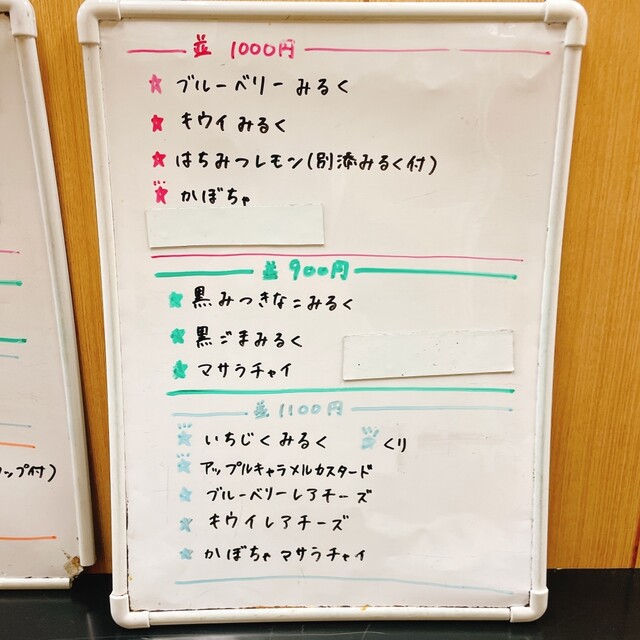 並 1000円
★ ブルーベリーみるく
★ キウイみるく
★ はちみつレモン(別添みるく付)
★ かぼちゃ
並 900円
★ 黒みつきなこみるく
★ 黒ごまみるく
★ マサラチャイ
並 1100円
★ いちじくみるく ★ くり
★ アップルキャラメルカスタード
★ ブルーベリーレアチーズ
★ キウイレアチーズ
★ かぼちゃマサラチャイ
ップ付)